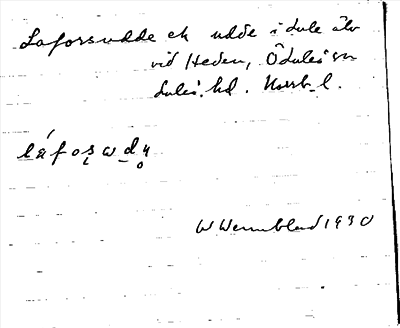 Laforsudde en udde i Lule älv
vid Heden, Ö Lule sn
Lule hd. Norrb. l.
W Wennblad 1930